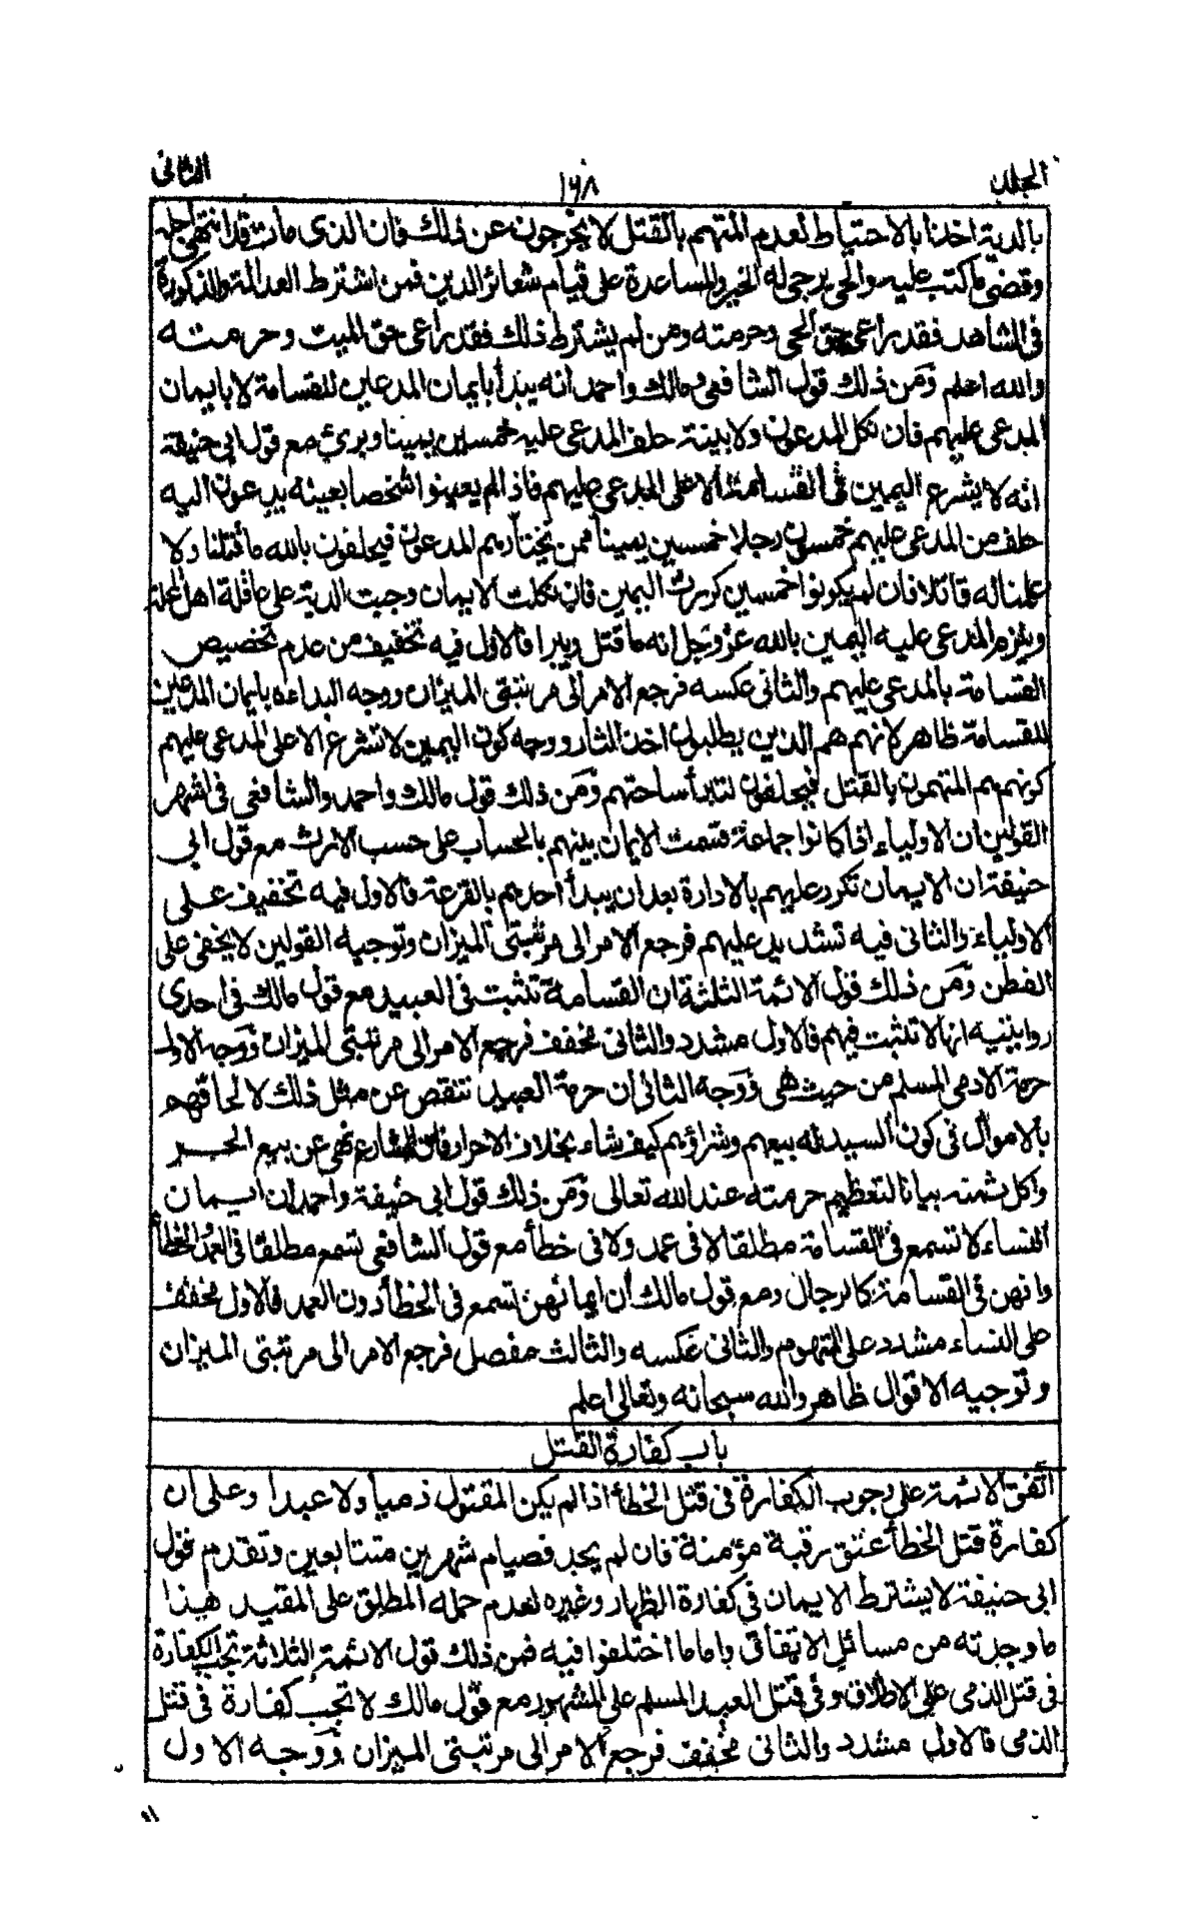 الجلد ١٦٨ الثانى
بالدية اخذا بالاحتياط لعدم المتهم بالقتل لا يخرجون عن ذلك فان الذى مات قد انتهى اجله
وقضى ماكتب عليه والحى يرجى له الخير والمساعدة على قيام شعائر الدين فمن اشترط العدالة والذكورة
فى الشاهد فقد راعى حق الحى وحرمته ومن لم يشترط ذلك فقد راعى حق الميت وحرمته
والله اعلم ومن ذلك قول الشافعى ومالك واحمد انه يبدأ بايمان المدعين للقسامة لا بايمان
المدعى عليهم فان نكل المدعون ولا بينة حلف المدعى عليه خمسين يمينا وبرئ مع قول ابى حنيفة
انه لا يشرع اليمين فى القسامة الا على المدعى عليهم فاذا لم يعينوا شخصا بعينه يدعون اليه
حلف من المدعى عليهم خمسون رجلا خمسين يمينا ممن يختارهم المدعون فيحلفون بالله ما قتلنا ولا
علمنا له قاتلا فان لم يكونوا خمسين كررت اليمين فان نكلت الايمان وجبت الدية على عاقلة اهل المحلة
ويلزم المدعى عليه اليمين بالله عز وجل انه ما قتل ويبرا فالاول فيه تخفيف من عدم تخصيص
القسامة بالمدعى عليهم والثانى عكسه فرجع الامر الى مرتبتى الميزان ووجه البداءة بايمان المدعين
للقسامة ظاهر لانهم هم الذين يطلبون اخذ الثار ووجه كون اليمين لا تشرع الا على المدعى عليهم
كونهم هم المتهمون بالقتل فيحلفون لتبرأ ساحتهم ومن ذلك قول مالك واحمد والشافعى فى اشهر
القولين ان الاولياء اذا كانوا جماعة قسمت الايمان بينهم بالحساب على حسب الارث مع قول ابى
حنيفة ان الايمان تكرر عليهم بالادارة بعد ان يبدأ احدهم بالقرعة فالاول فيه تخفيف على
الاولياء والثانى فيه تشديد عليهم فرجع الامر الى مرتبتى الميزان وتوجيه القولين لا يخفى على
الفطن ومن ذلك قول الائمة الثلثة ان القسامة تثبت فى العبيد مع قول مالك فى احدى
روايتيه انها لا تثبت فيهم فالاول مشدد والثانى مخفف فرجع الامر الى مرتبتى الميزان ووجه الاول
حرمة الادمى المسلم من حيث هى ووجه الثانى ان حرمة العبيد تنقص عن مثل ذلك لالحاقهم
بالاموال فى كون السيد له بيعهم وشراؤهم كيف شاء بخلاف الاحرار فان الشارع نهى عن بيع الحر
واكل ثمنه بيانا لتعظيم حرمته عند الله تعالى ومن ذلك قول ابى حنيفة واحمد ان ايمان
النساء لا تسمع فى القسامة مطلقا لا فى عمد ولا فى خطأ مع قول الشافعى تسمع مطلقا فى العمد والخطأ
وانهن فى القسامة كالرجال ومع قول مالك ان ايمانهن تسمع فى الخطأ دون العمد فالاول مخفف
على النساء مشدد على المتهوم والثانى عكسه والثالث مفصل فرجع الامر الى مرتبتى الميزان
وتوجيه الاقوال ظاهر والله سبحانه وتعالى اعلم
باب كفارة القتل
اتفق الائمة على وجوب الكفارة فى قتل الخطأ اذا لم يكن المقتول ذميا ولا عبدا وعلى ان
كفارة قتل الخطأ عتق رقبة مؤمنة فان لم يجد فصيام شهرين متتابعين وتقدم قول
ابى حنيفة لا يشترط الايمان فى كفارة الظهار وغيره لعدم حمله المطلق على المقيد هذا
ما وجدته من مسائل الاتفاق واما ما اختلفوا فيه فمن ذلك قول الائمة الثلاثة تجب الكفارة
فى قتل الذمى على الاطلاق وفى قتل العبد المسلم على المشهور مع قول مالك لا تجب كفارة فى قتل
الذمى فالاول مشدد والثانى مخفف فرجع الامر الى مرتبتى الميزان ووجه الاول